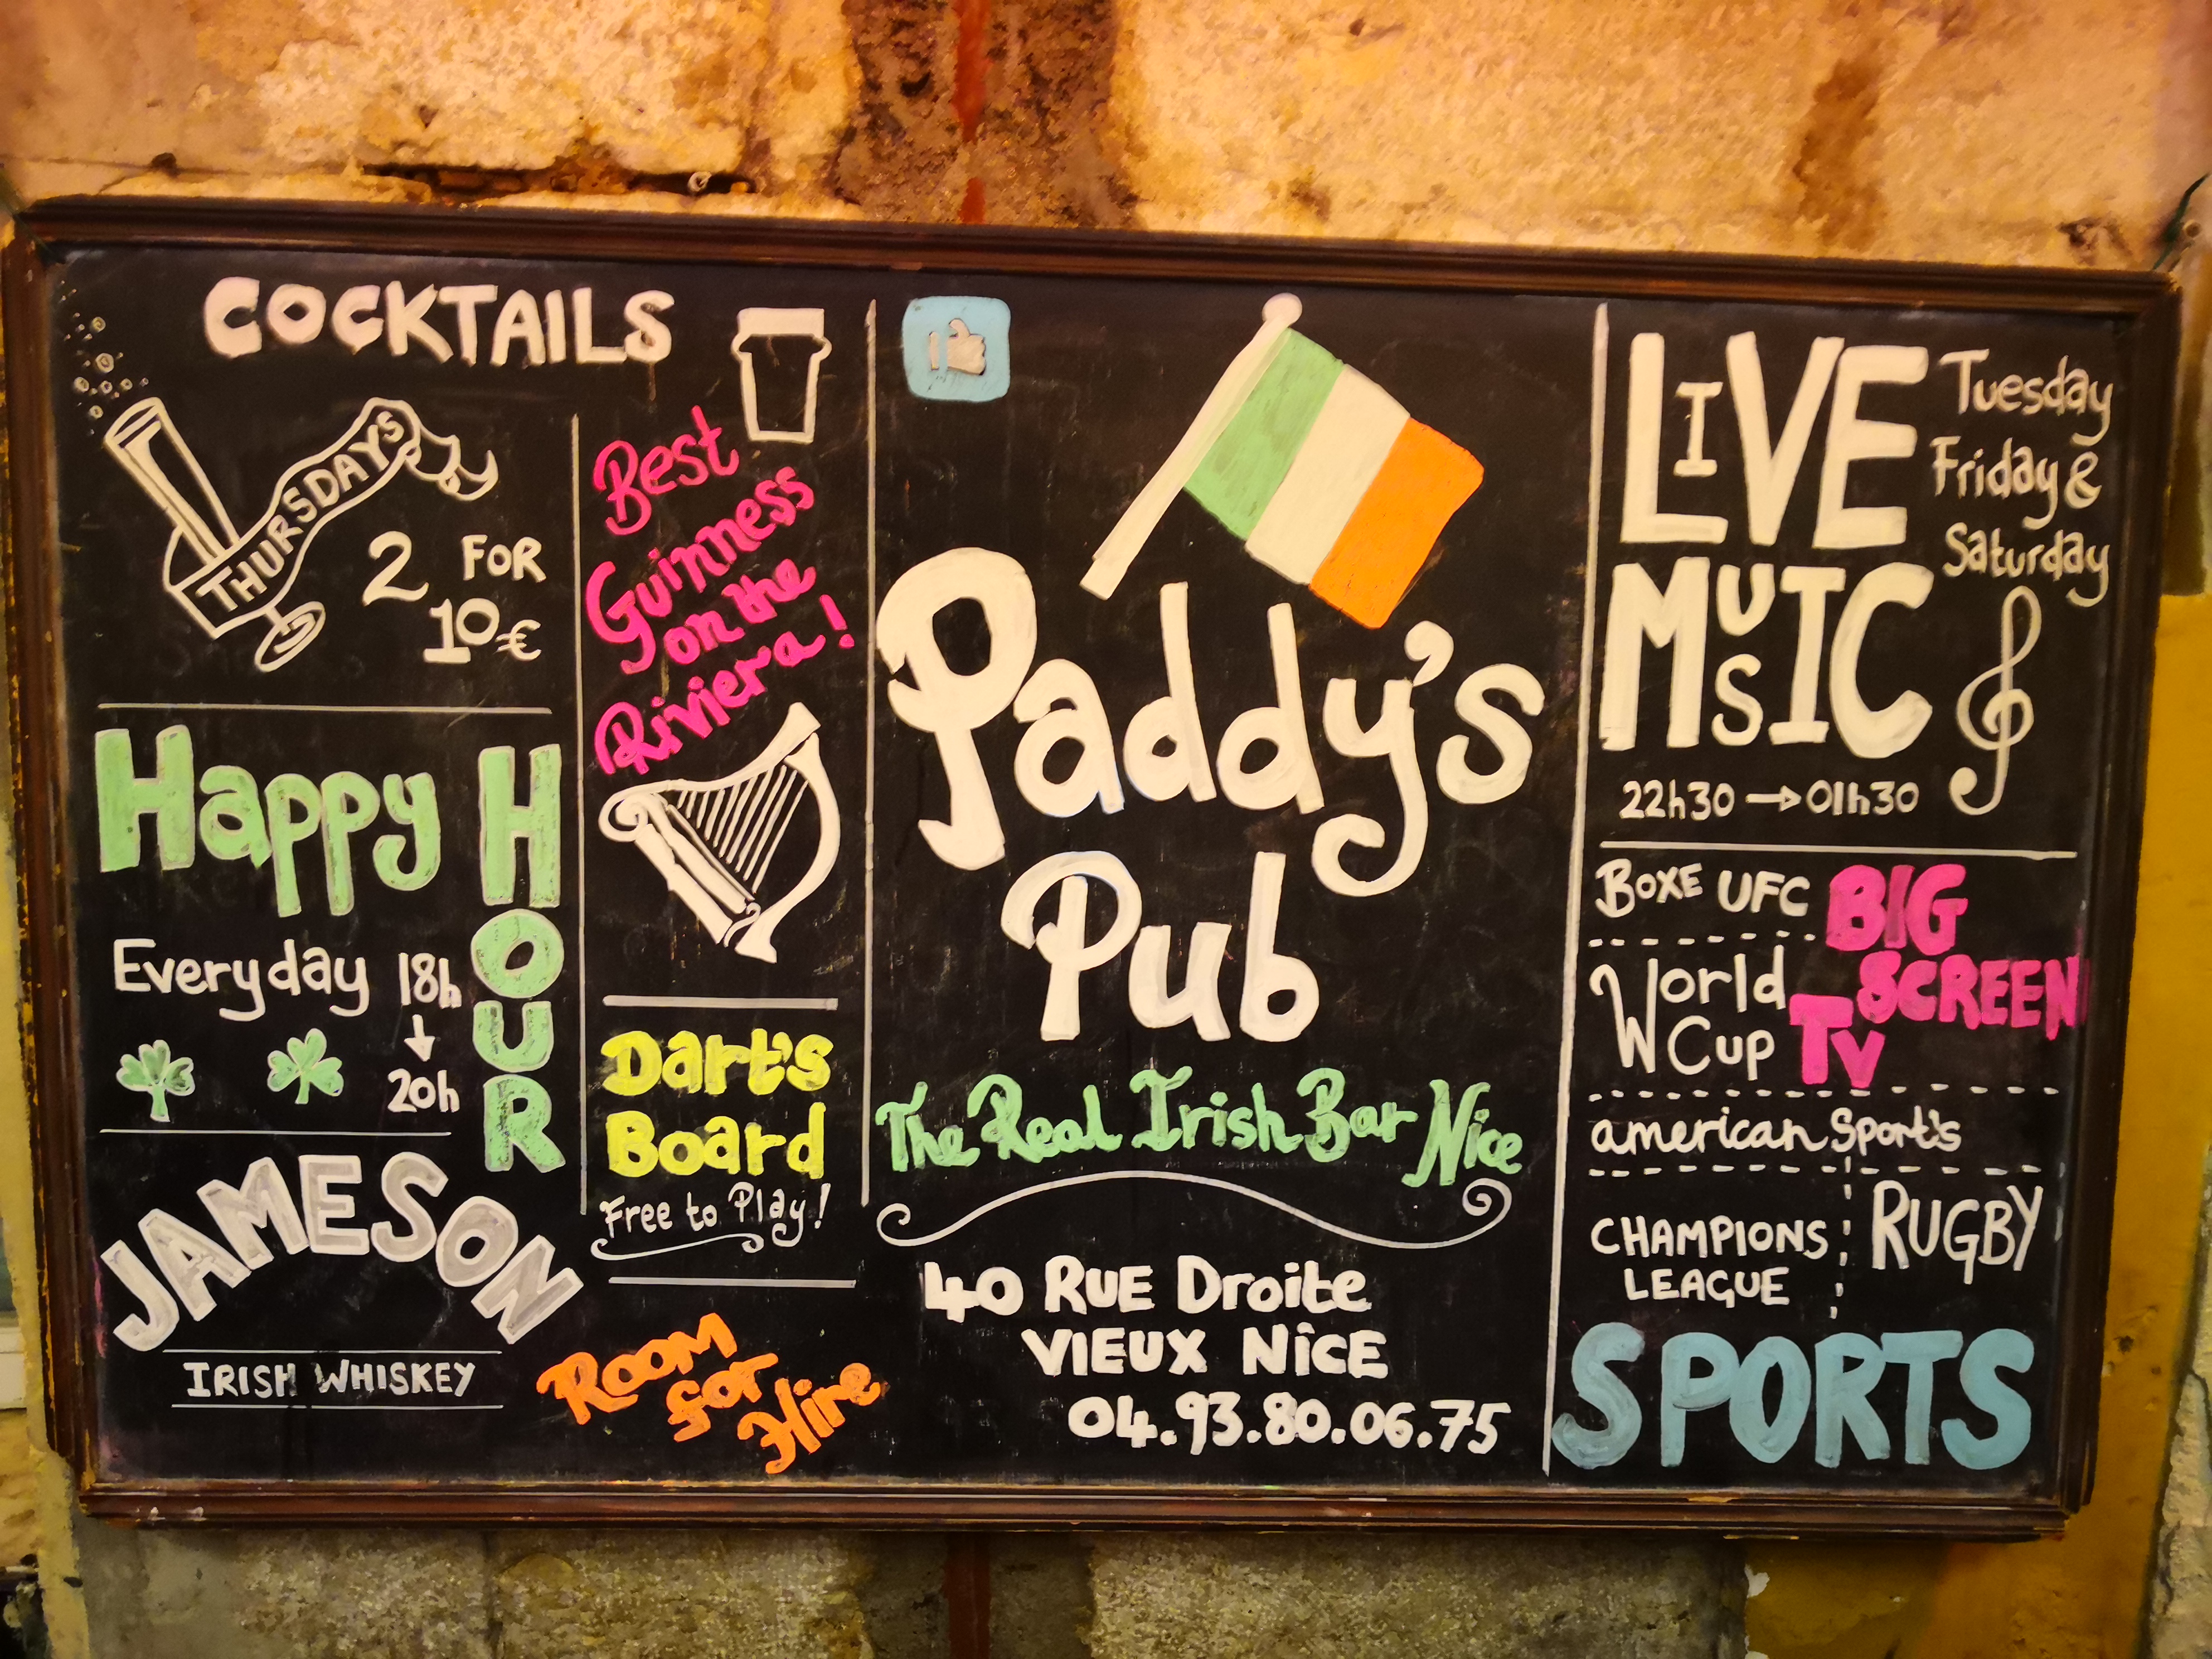 COCKTAILS
THURSDAYS
2 FOR
10€
Happy HOUR
Everyday 18h
20h
JAMESON
IRISH WHISKEY
Best
Guinness
on the
Riviera!
Dart's
Board
Free to Play!
Room
for
Hire
Paddy's
Pub
The Real Irish Bar Nice
40 RUE Droite
VIEUX NiCE
04.93.80.06.75
LIVE
MUSIC
Tuesday
Friday &
Saturday
22h30 → 01h30
BOXE UFC
World
Cup
BIG
SCREEN
TV
american Sport's
CHAMPIONS
LEAGUE
RUGBY
SPORTS